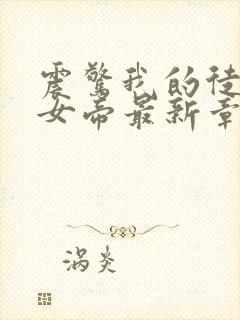 震驚我的徒
女帝最新章
涡炎